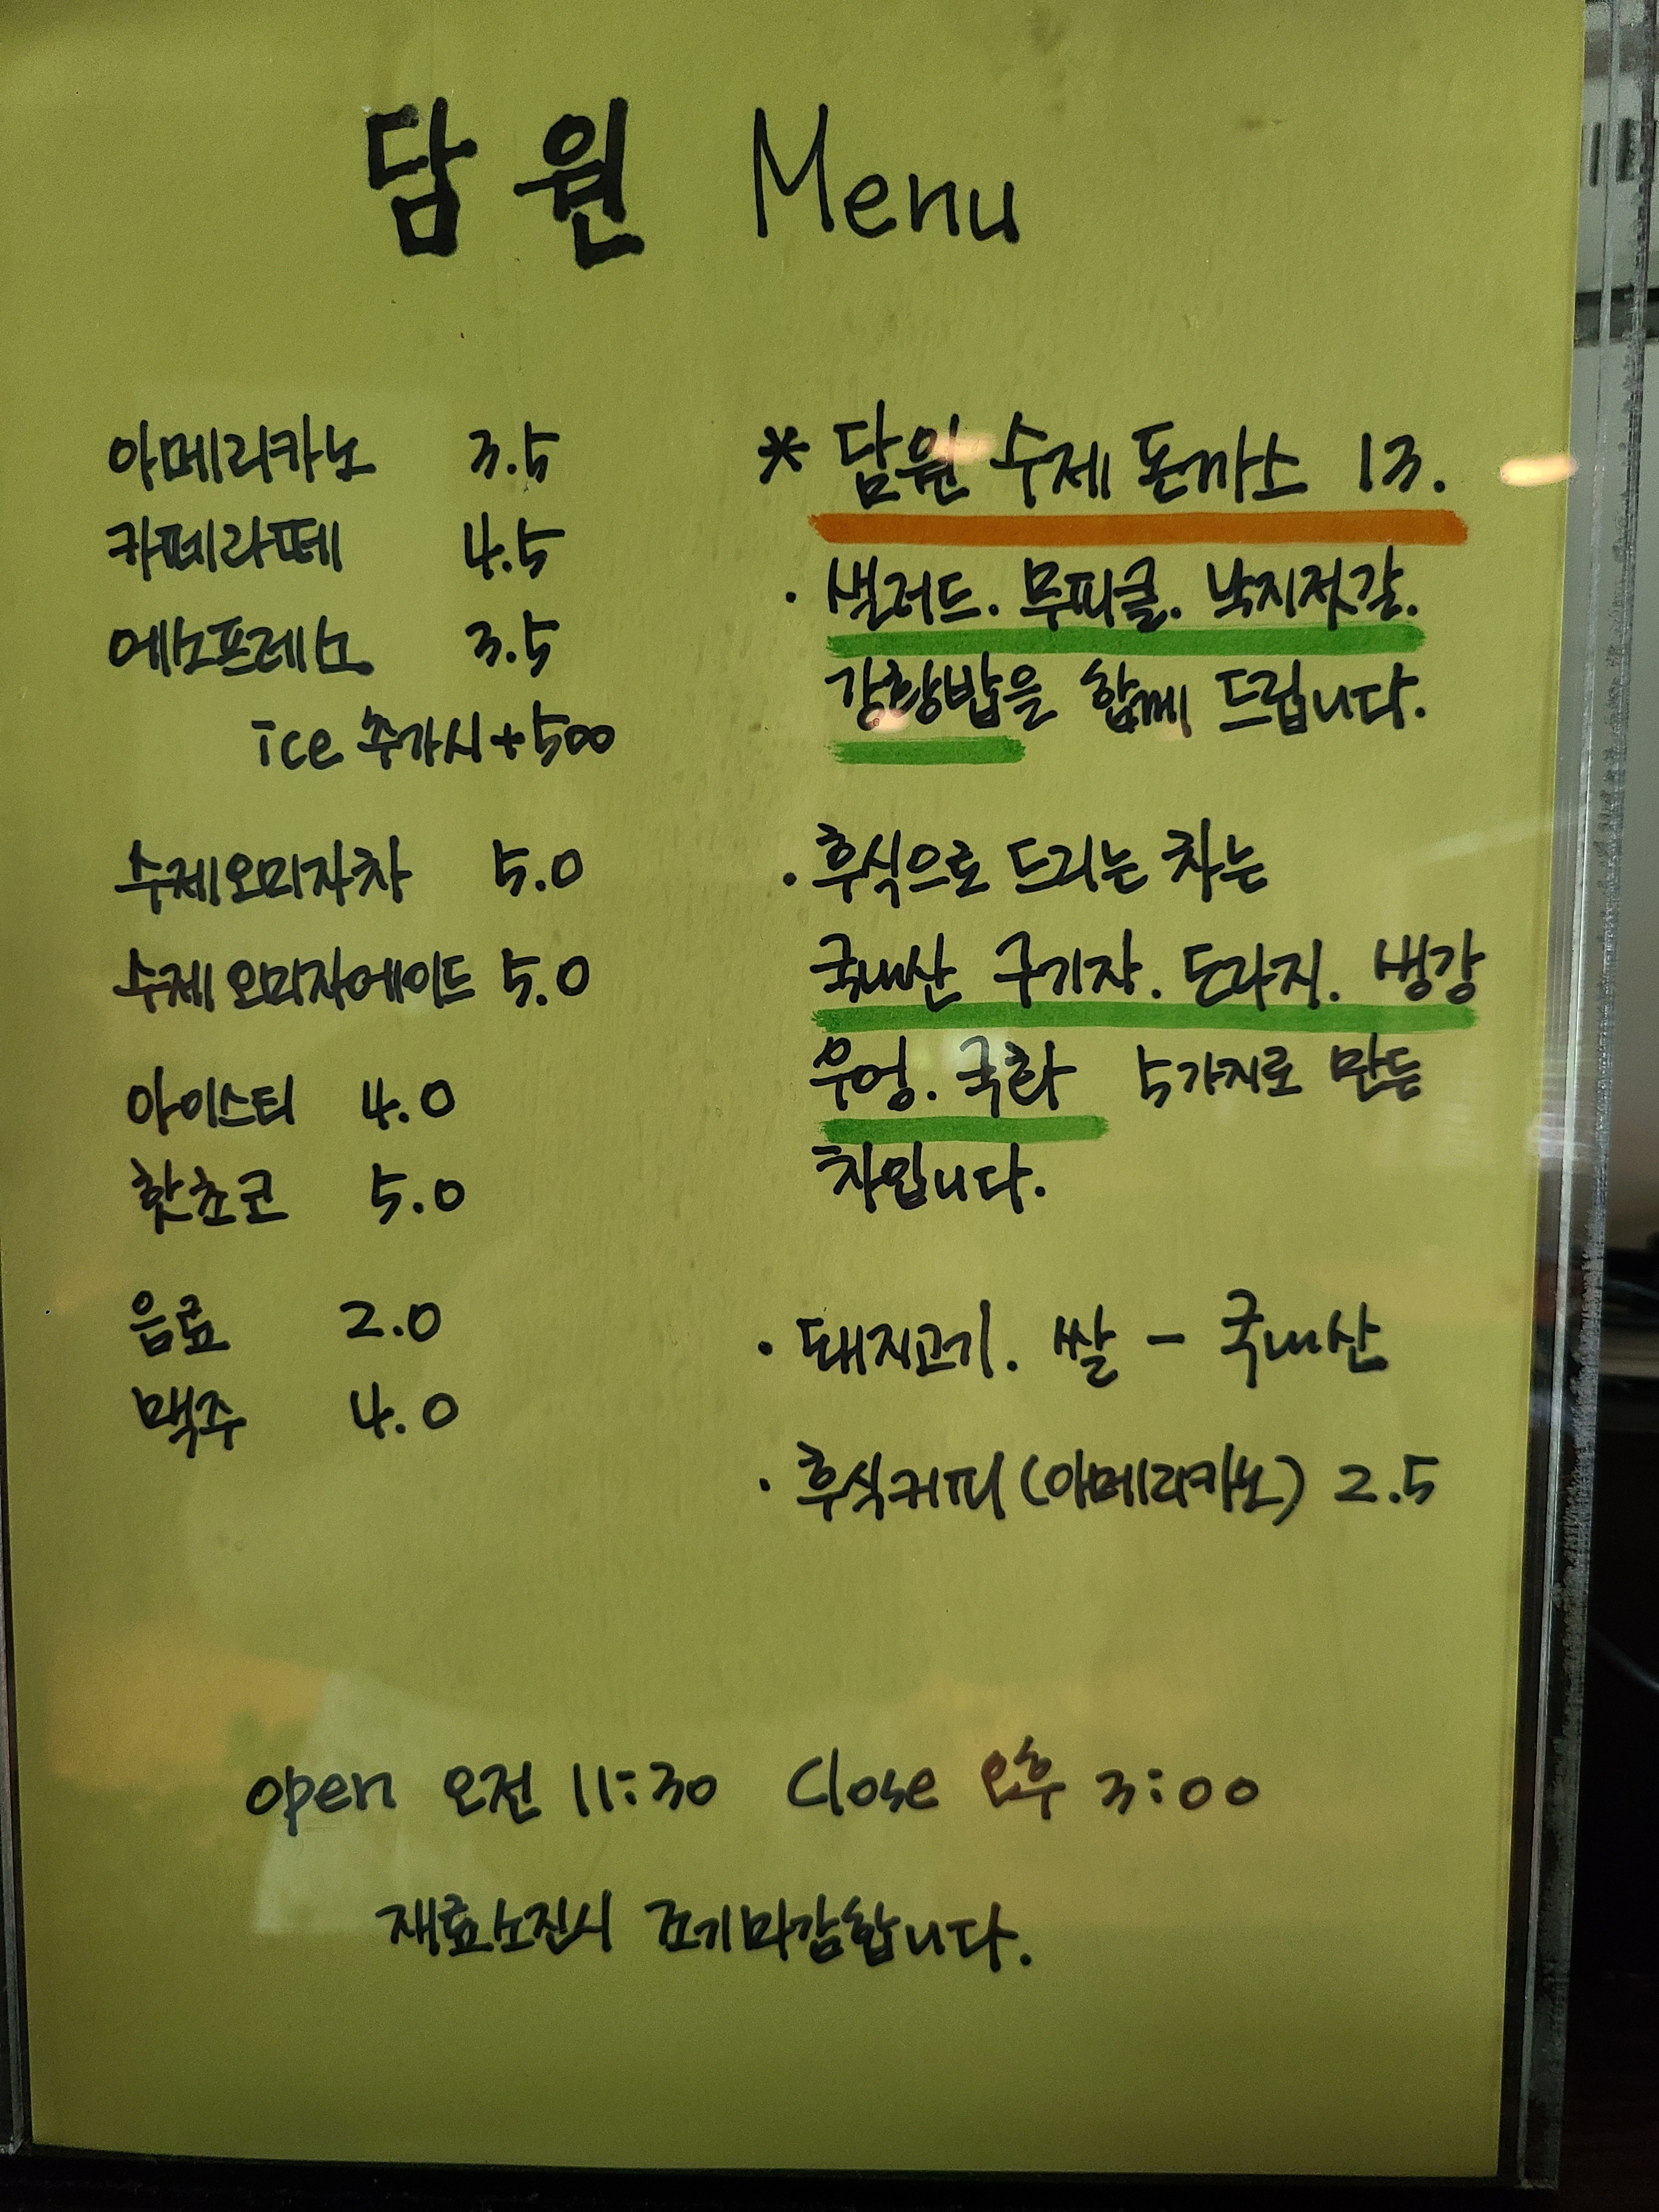 담원 Menu
아메리카노 3.5
카페라떼 4.5
에스프레소 3.5
ice 추가시 +500
수제오미자차 5.0
수제 오미자에이드 5.0
아이스티 4.0
핫초코 5.0
음료 2.0
맥주 4.0
* 담원 수제 돈까스 13.
· 샐러드. 무피클. 낙지젓갈.
강황밥을 함께 드립니다.
· 후식으로 드리는 차는
국내산 구기자. 도라지. 생강
우엉. 국화 5가지로 만든
차입니다.
· 돼지고기. 쌀 - 국내산
· 후식커피 (아메리카노) 2.5
open 오전 11:30 Close 오후 3:00
재료소진시 조기마감합니다.